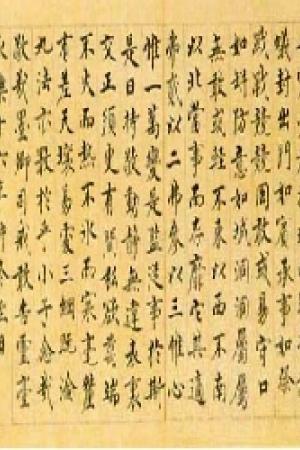 蟻封出門如賓承事如祭
戰戰兢兢罔敢或易守口
如缾防意如城洞洞屬屬
無敢或輕不東以西不南
以北當事而存靡它其適
弗貳以二弗參以三惟心
惟一萬變是監從事於斯
是曰持敬動靜無違表裏
交正須臾有間私欲萬端
不火而熱不冰而寒毫釐
有差天壤易處三綱既淪
九法亦斁於乎小子念哉
敬哉墨卿司戒敢告靈臺
永樂十六年仲冬至日